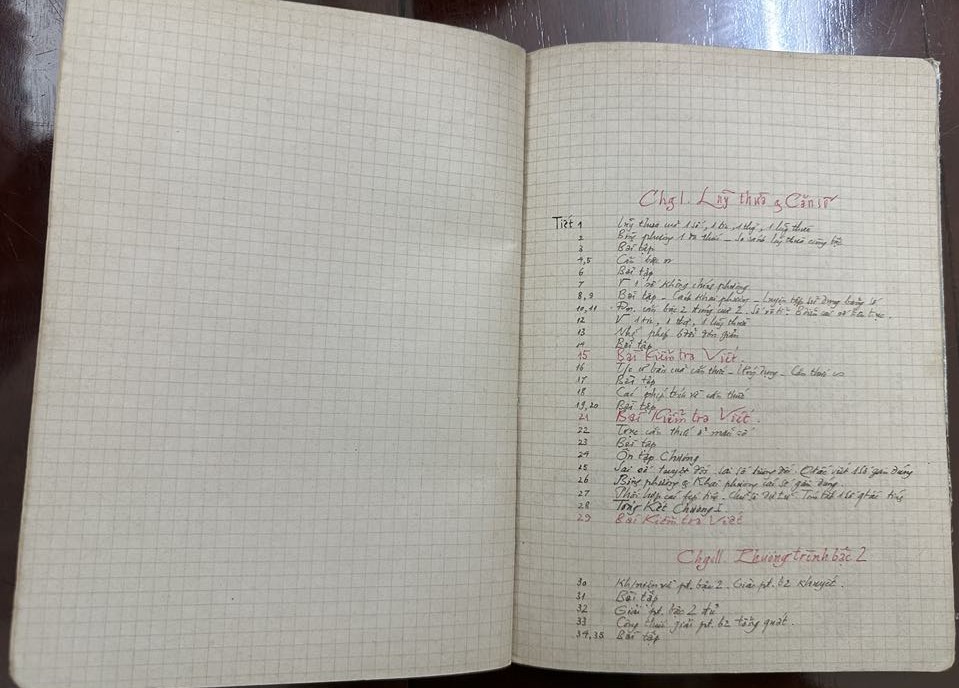 Chg I. Luỹ thừa & Căn số
Tiết 1 Luỹ thừa của 1 số, 1 tích, 1 thg, 1 luỹ thừa
2 Bình phương 1 đa thức - So sánh luỹ thừa cùng bậc
3 Bài tập
4,5 Căn bậc n
6 Bài tập
7 √ 1 số không chính phương
8,9 Bài tập - Cách khai phương - Luyện tập sử dụng bảng số
10,11 căn bậc 2 đúng của 2. Số vô tỉ - trục.
12 √ 1 tích, 1 thg, 1 luỹ thừa
13 phép biến đổi đơn giản
14 Bài tập
15 Bài Kiểm tra Viết.
16 T/c cơ bản của căn thức - Ứng dụng - Căn thức
17 Bài tập
18 Các phép tính về căn thức
19,20 Bài tập
21 Bài Kiểm tra Viết.
22 Trục căn thức ở mẫu số
23 Bài tập
24 Ôn tập Chương
25 Sai số tuyệt đối. sai số tương đối. Cách viết 1 số gần đúng
26 Bình phương & Khai phương các số gần đúng.
27 Phối hợp các Tính
28 Tổng Kết Chương I
29 Bài Kiểm tra Viết
Chg II. Phương trình bậc 2
30 Kh/niệm về pt. bậc 2. Giải pt. b2 khuyết.
31 Bài tập
32 Giải pt. bậc 2 đủ
33 Công thức giải pt. b2 tổng quát.
34,35 Bài tập